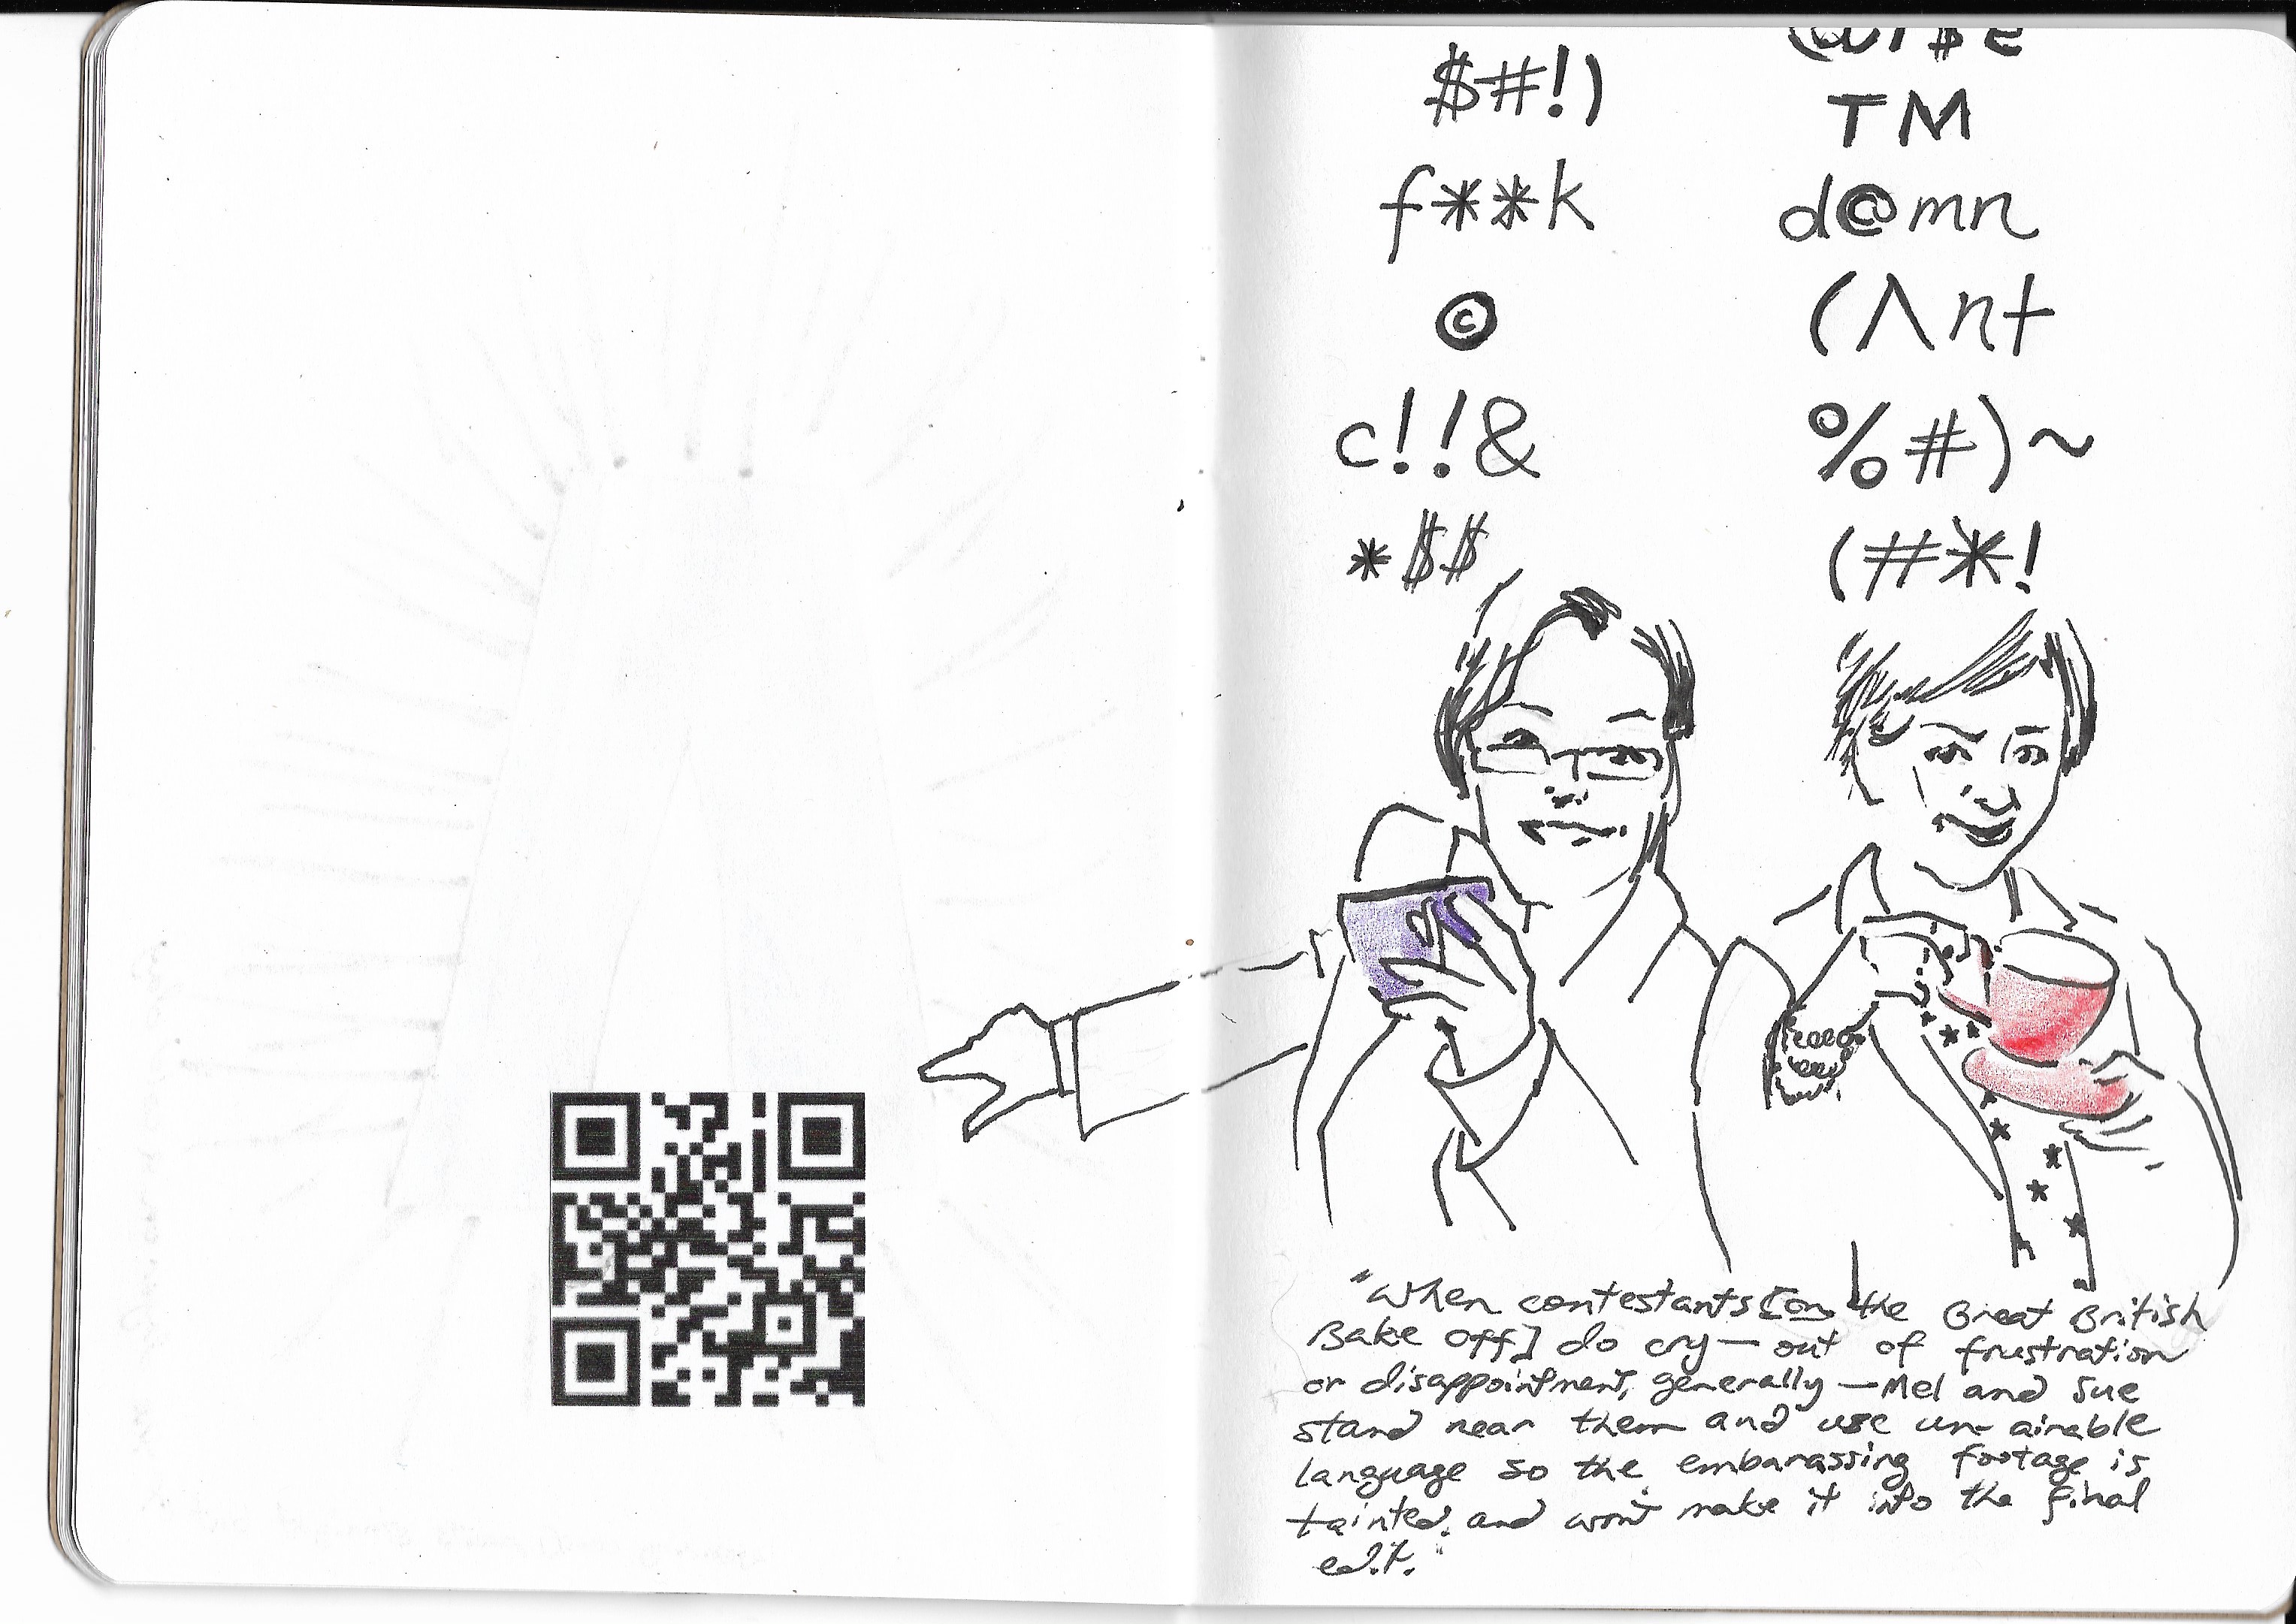 $#!) 
TM
f**k d@mn
© (Λnt
c!!& %#)~
*$$ (#*!
"When contestants [on the Great British
Bake Off] do cry — out of frustration
or disappointment, generally — Mel and Sue
stand near them and use un-airable
language so the embarassing footage is
tainted and won't make it into the final
edit."